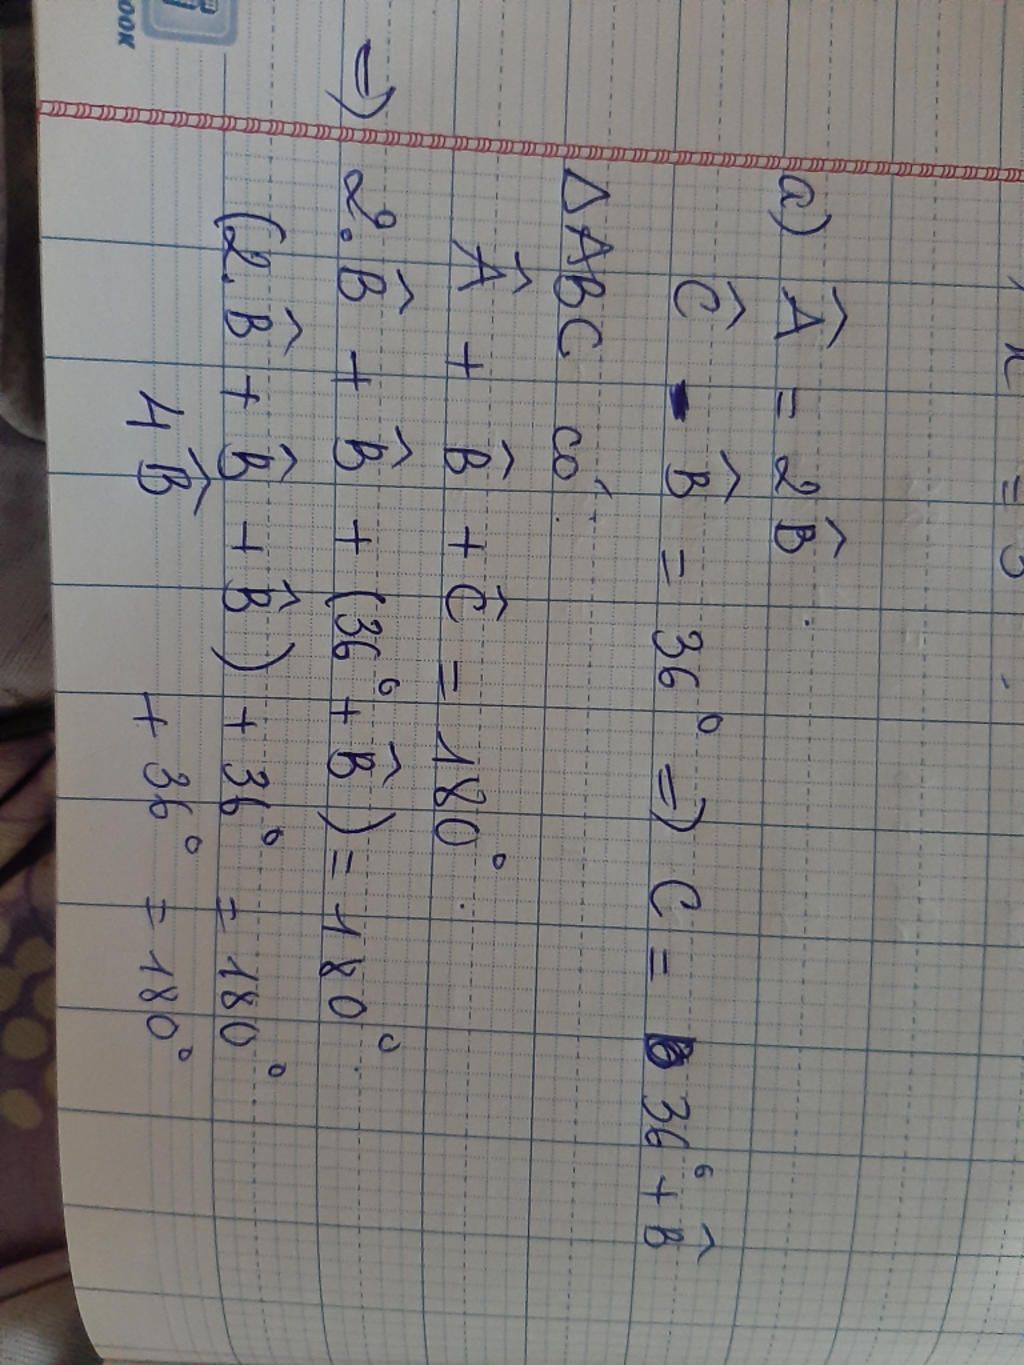 x = 3
a) Â = 2B̂.
Ĉ - B̂ = 36° => C = 36° + B̂
Δ ABC có:
Â + B̂ + Ĉ = 180°.
=> 2. B̂ + B̂ + (36° + B̂) = 180°.
(2. B̂ + B̂ + B̂) + 36° = 180°.
4 B̂ + 36° = 180°